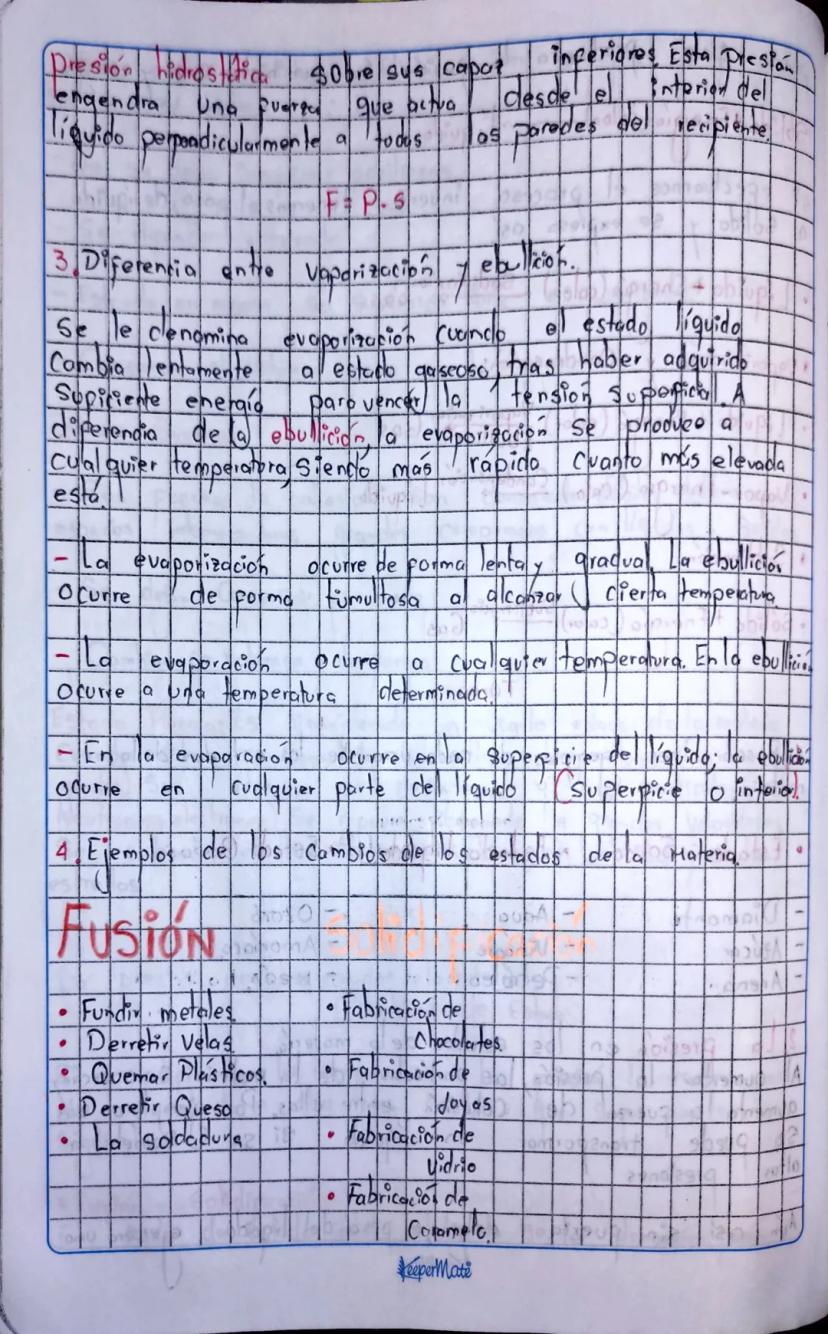 Presión hidrostática sobre sus capas inferiores. Esta presión
engendra una fuerza que actua desde el interior del
líquido perpendicularmente a todas las paredes del recipiente.
F = P. S
3. Diferencia entre vaporización y ebullición.
Se le denomina evaporización cuando el estado líquido
Cambia lentamente a estado gaseoso, tras haber adquirido
Suficiente energía para vencer la tensión superficial. A
diferencia de la ebullición, la evaporización se produce a
cualquier temperatura, siendo más rápido cuanto más elevada
está.
- La evaporización ocurre de forma lenta y gradual. La ebullición
Ocurre de forma tumultosa al alcanzar cierta temperatura
- La evaporación ocurre a cualquier temperatura. En la ebullición
ocurre a una temperatura determinada.
- En la evaparación ocurre en la superficie del líquido; la ebullición
ocurre en cualquier parte del líquido (superficie o interior).
4. Ejemplos de los Cambios de los estados de la Materia.
Fusión Solidificación
• Fundir metales. • Fabricación de
• Derretir Velas Chocolates.
• Quemar Plásticos. • Fabricación de
• Derretir Queso Joyas
• La soldadura • Fabricación de
Vidrio
• Fabricación de
Caramelo.
KeeperMate